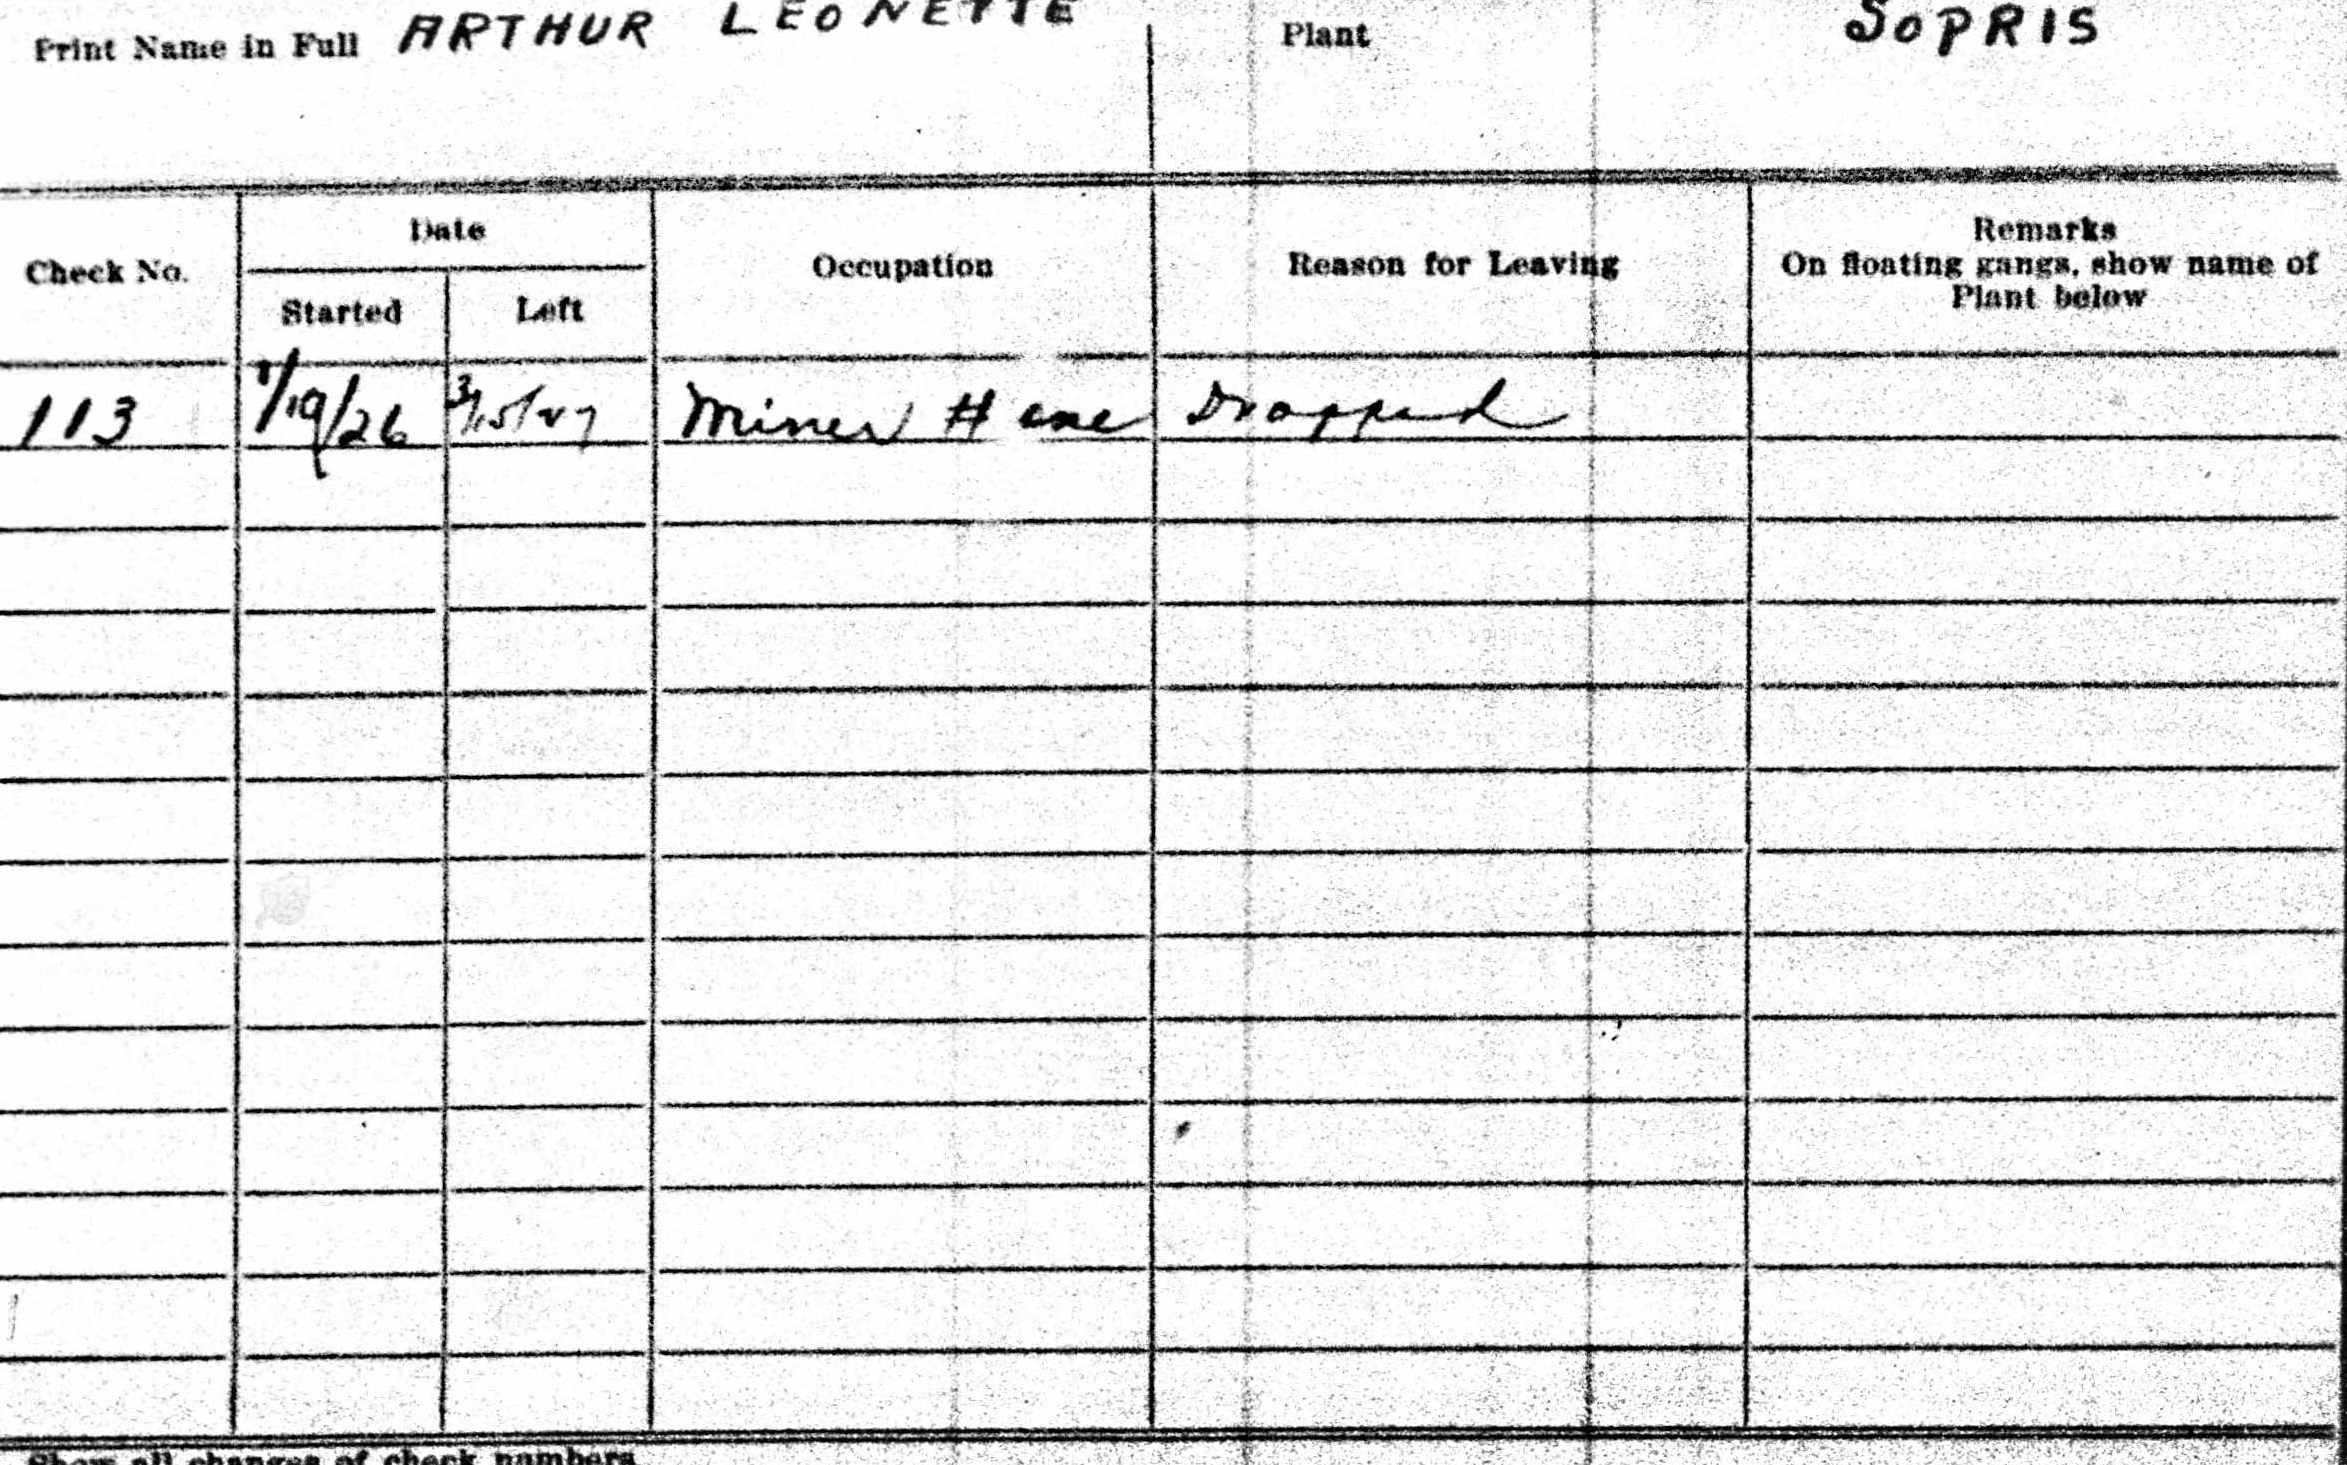 Print Name in Full ARTHUR LEONETTE Plant SOPRIS
Check No. Date Started Left Occupation Reason for Leaving Remarks
On floating gangs, show name of
Plant below
113 1/19/26 3/15/27 Miner # one Dropped
Show all changes of check numbers